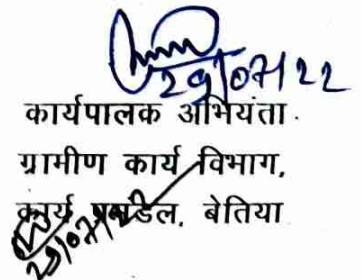 29/07/22
कार्यपालक अभियंता.
ग्रामीण कार्य विभाग,
कार्य प्रमंडल, बेतिया
29/07/22